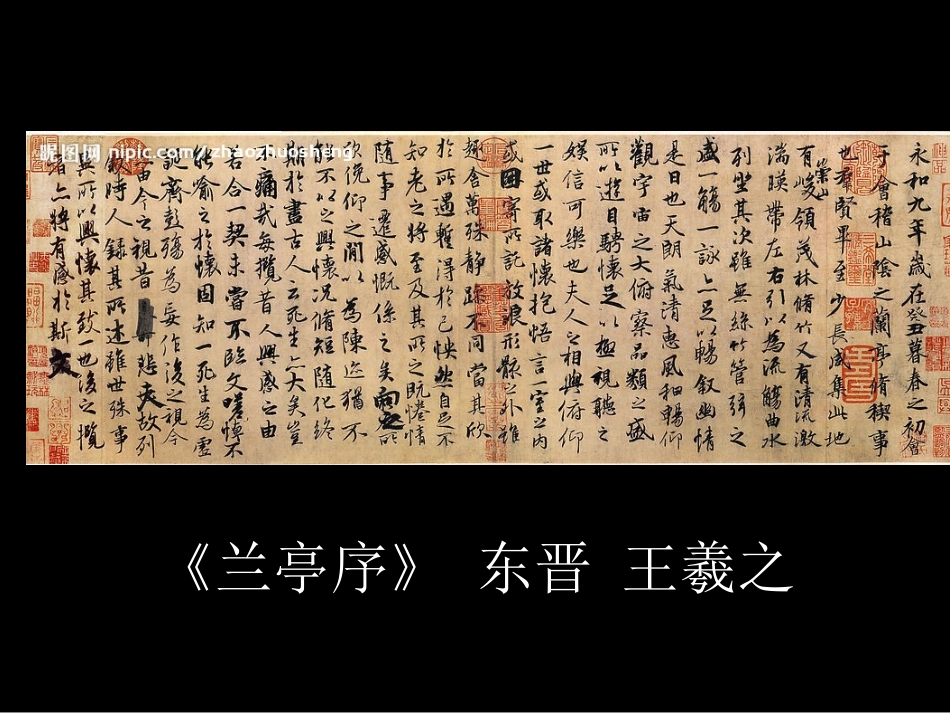 永和九年歲在癸丑暮春之初會
于會稽山陰之蘭亭脩禊事
也羣賢畢至少長咸集此地
有崇山峻領茂林脩竹又有清流激
湍暎帶左右引以為流觴曲水
列坐其次雖無絲竹管弦之
盛一觴一詠亦足以暢敘幽情
是日也天朗氣清惠風和暢仰
觀宇宙之大俯察品類之盛
所以遊目騁懷足以極視聽之
娛信可樂也夫人之相與俯仰
一世或取諸懷抱悟言一室之內
或因寄所託放浪形骸之外雖
趣舍萬殊靜躁不同當其欣
於所遇暫得於己怏然自足不
知老之將至及其所之既惓情
隨事遷感慨係之矣向之所
欣俛仰之間以為陳迹猶不
能不以之興懷況脩短隨化終
期於盡古人云死生亦大矣豈
不痛哉每攬昔人興感之由
若合一契未嘗不臨文嗟悼不
能喻之於懷固知一死生為虛
誕齊彭殤為妄作後之視今
亦由今之視昔悲夫故列
敘時人錄其所述雖世殊事
異所以興懷其致一也後之攬
者亦將有感於斯文
昵图网 nipic.com/zhaozhuosheng
《兰亭序》 东晋 王羲之